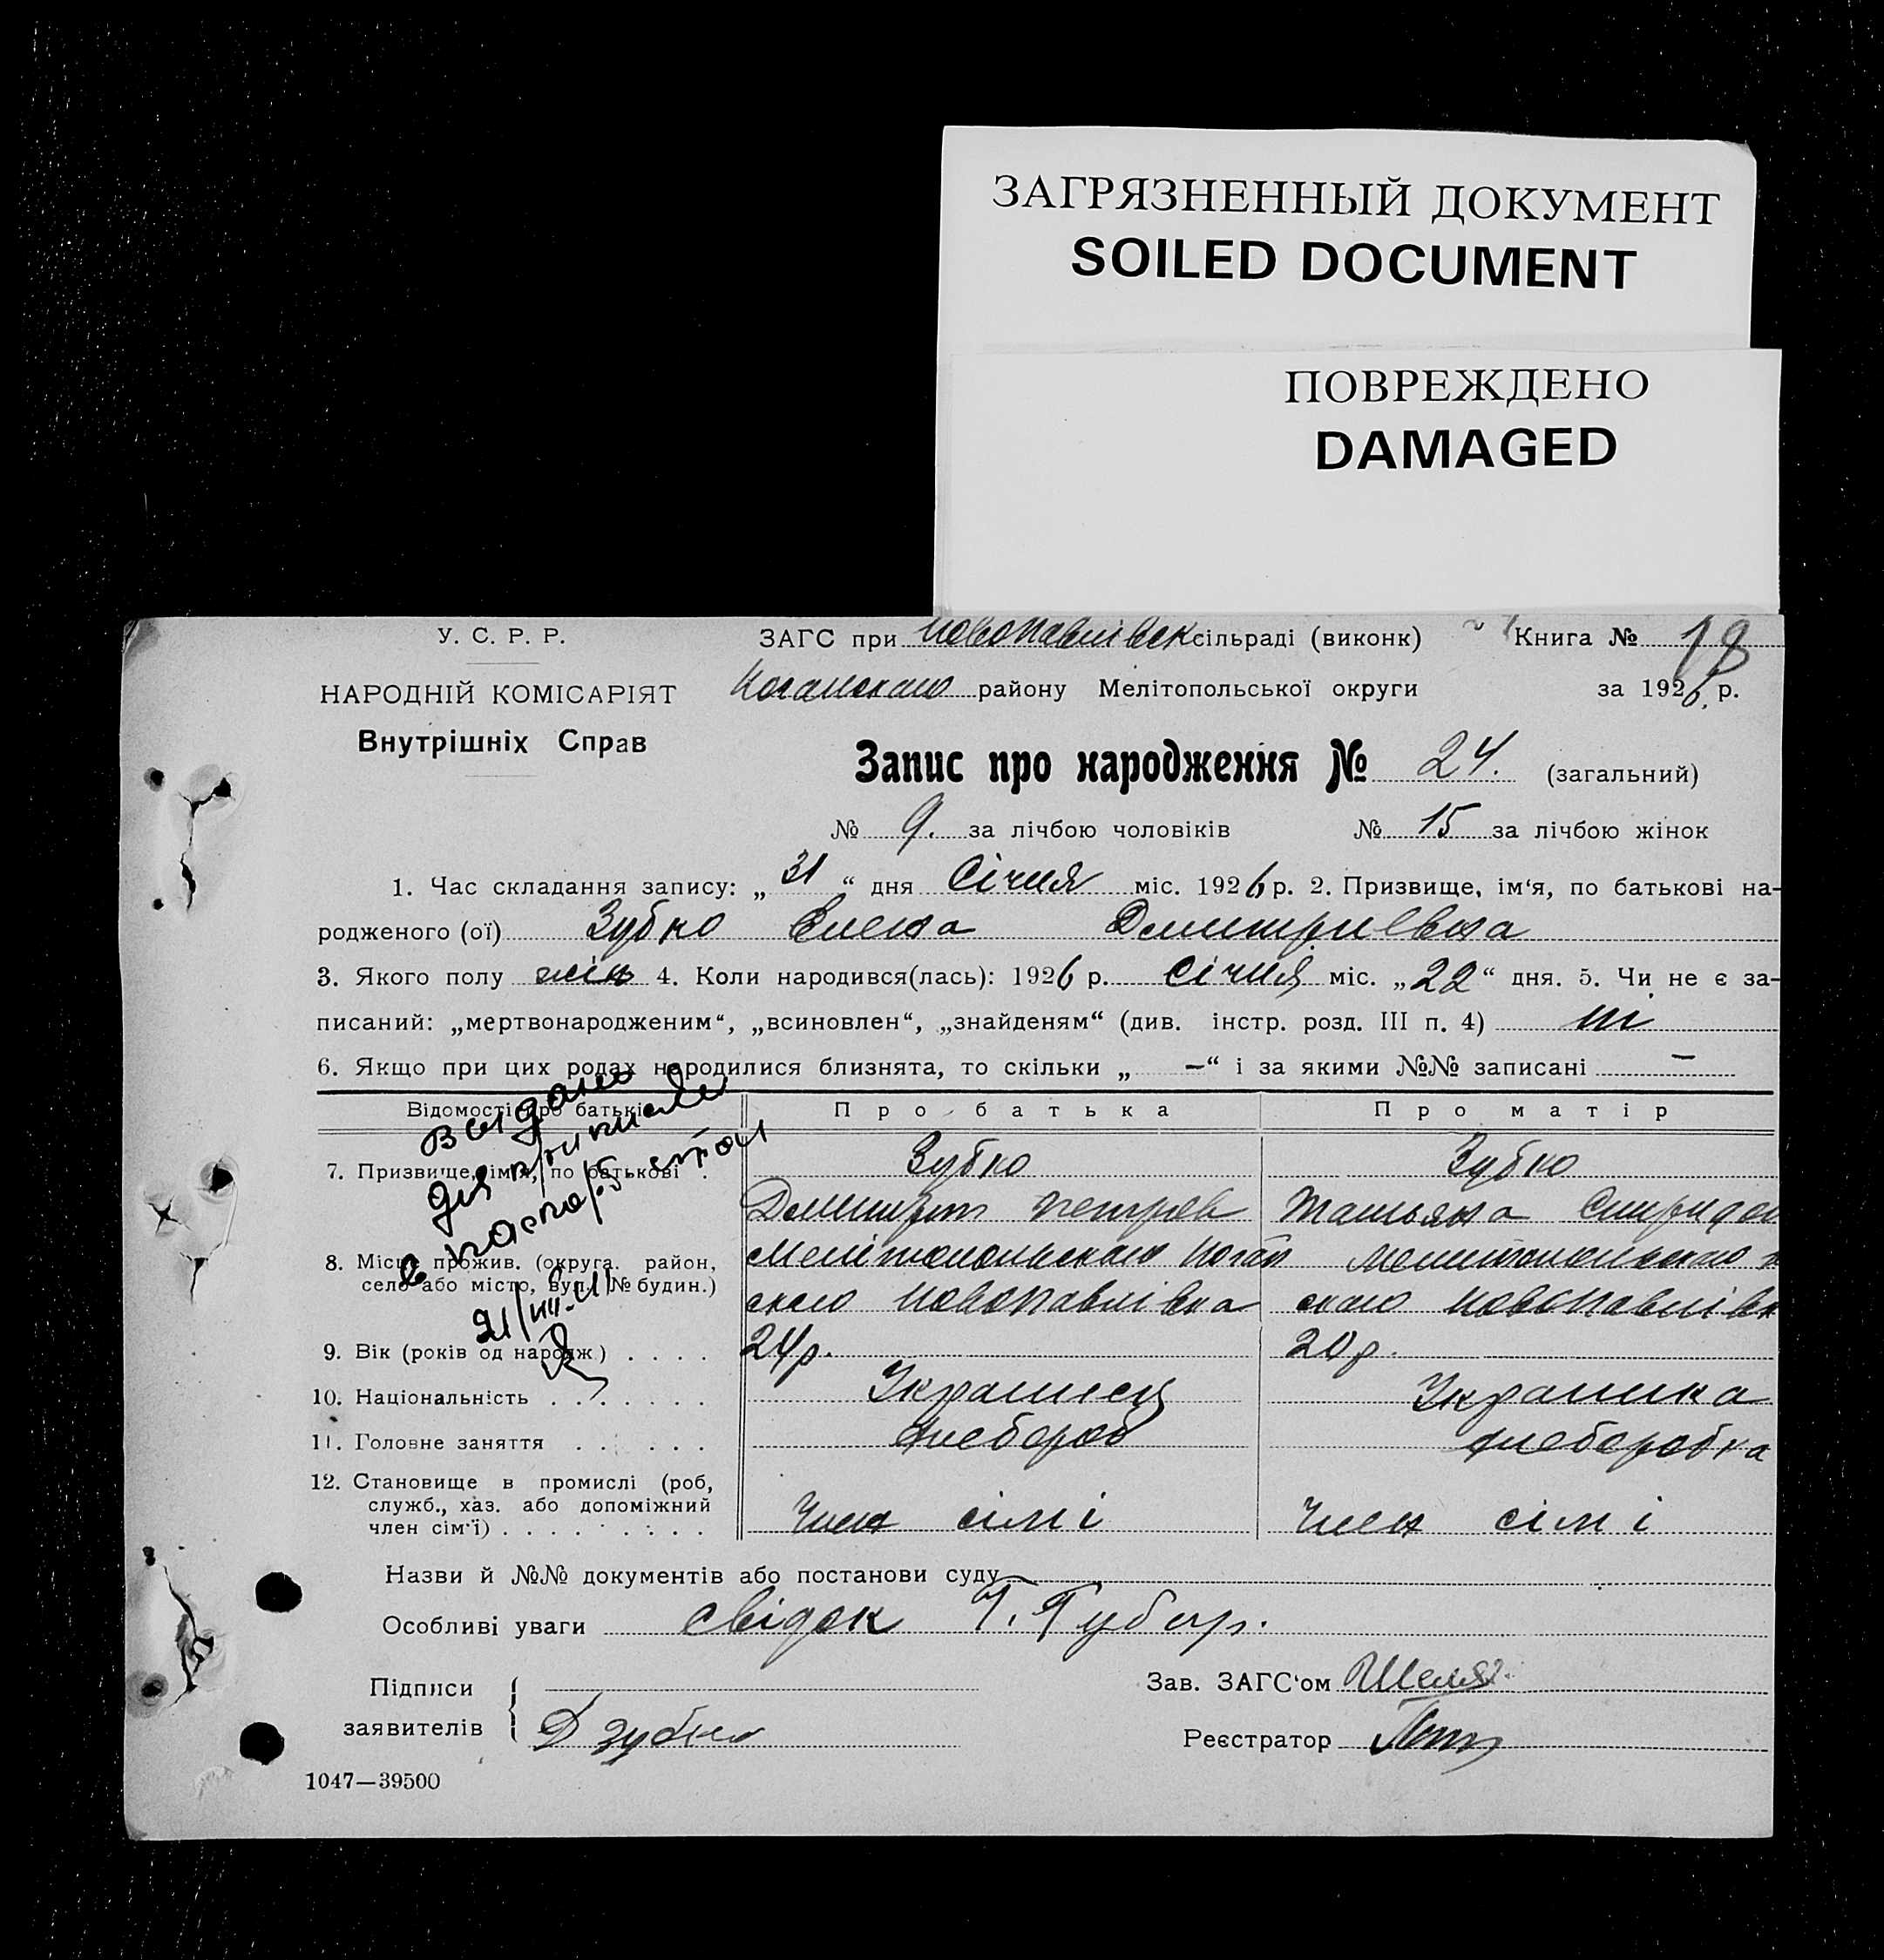 ЗАГРЯЗНЕННЫЙ ДОКУМЕНТ
SOILED DOCUMENT
ПОВРЕЖДЕНО
DAMAGED
У. С. Р. Р.
НАРОДНІЙ КОМІСАРІЯТ
Внутрішніх Справ
ЗАГС при Новопавлівск сільраді (виконк) Книга № 18
району Мелітопольської округи за 1926 р.
Запис про народження № 24. (загальний)
№ 9. за лічбою чоловіків № 15 за лічбою жінок
1. Час складання запису: „31“ дня Січня міс. 1926 р. 2. Призвище, ім‘я, по батькові на-
родженого (ої) Зубко Елена Дмитриевна
3. Якого полу жін 4. Коли народився(лась): 1926 р. Січня міс. „22“ дня. 5. Чи не є за-
писаний: „мертвонародженим“, „всиновлен“, „знайденям“ (див. інстр. розд. III п. 4) ні
6. Якщо при цих родах народилися близнята, то скільки „ —“ і за якими №№ записані —
Відомості про батьків Про батька Про матір
7. Призвище, імя, по батькові . Зубко Зубко
Дмитрт петров Татьяна Спиридон
8. Місце прожив. (округа. район,
село або місто, вул. № будин.)
Мелітопольскаго
скаго Новопавлівка скаго Новопавлівк
9. Вік (років од народж.) . . . . 24р. 20р.
10. Національність . . . . . . . Украинец Украинка
11. Головне заняття . . . . . . хлебороб хлеборобка
12. Становище в промислі (роб,
служб., хаз. або допоміжний
член сім‘ї) . . . . . . . . . Член сімі Член сімі
выдано
для
в паспорт стол
Назви й №№ документів або постанови суду
Особливі уваги свідок Г. Губар.
Підписи
заявителів Д Зубко
Зав. ЗАГС‘ом
Реєстратор
1047—39500